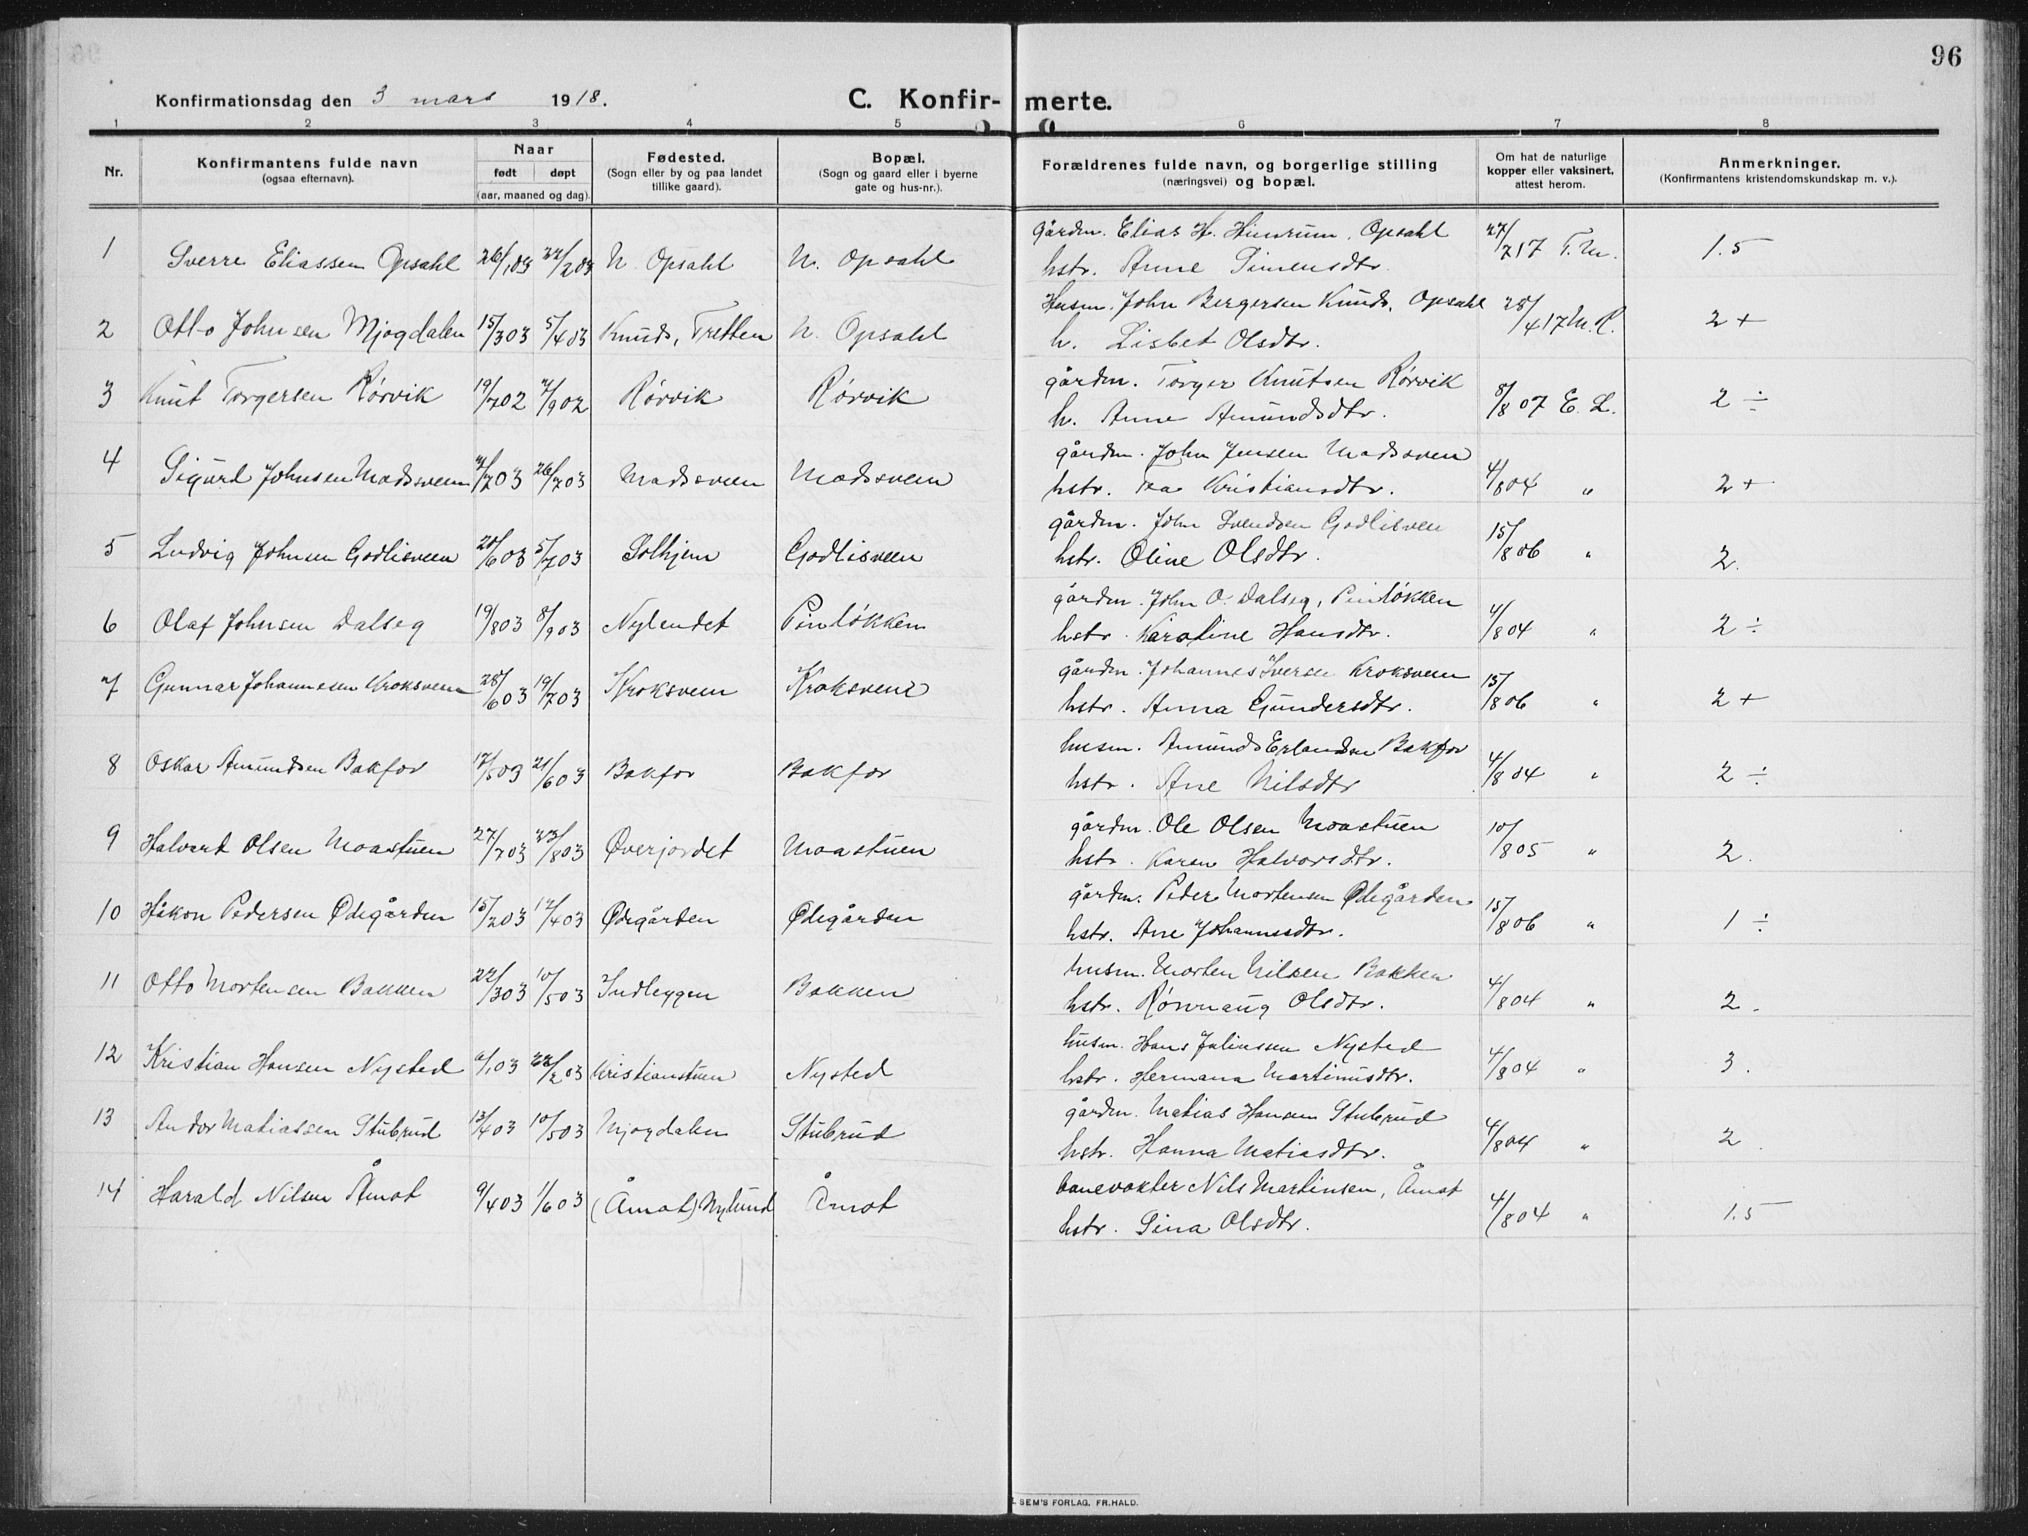 96
Konfirmationsdag den 3 mars 1918.
C. Konfir- merte.
1 2 3 4 5 6 7 8
Nr.
Konfirmantens fulde navn
(ogsaa efternavn).
Naar
født døpt
(aar, maaned og dag)
Fødested.
(Sogn eller by og paa landet
tillike gaard).
Bopæl.
(Sogn og gaard eller i byerne
gate og hus-nr.).
Forældrenes fulde navn, og borgerlige stilling
(næringsvei) og bopæl.
Om hat de naturlige
kopper eller vaksinert,
attest herom.
Anmerkninger.
(Konfirmantens kristendomskundskap m. v.).
gårdm. Elias H. Opsahl
1 Sverre Eliassen Opsahl 26/1 03 22/2 03 N. Opsahl N. Opsahl hstr. Anne Simensdtr. 27/7 17 T.M. 1.5
Husm. John Bergersen Knuds, Opsahl
2 Otto Johnsen Mjogdalen 15/3 03 5/4 03 Knuds, Tretten N. Opsahl h. Lisbet Olsdtr. 28/4 17 M.R. 2+
gårdm. Torger Knutsen Rørvik
3 Knut Torgersen Rørvik 19/7 02 7/9 02 Rørvik Rørvik h. Anne Amundsdtr. 8/8 07 E. L. 2 ÷
gårdm. John Jensen Madssveen
4 Sigurd Johnsen Madssveen 4/7 03 26/7 03 Madssveen Madssveen hstr. Kristiansdtr. 4/8 04 " 2+
gårdm. John Svendsen Godlisveen
5 Ludvig Johnsen Godlisveen 20/6 03 5/7 03 Solhjem Godlisveen hstr. Oline Olsdtr. 15/8 06 " 2.
gårdm. John O. Dalseg, Pinløkken
6 Olaf Johnsen Dalseg 19/8 03 8/9 03 Nylendet Pinløkken hstr. Karoline Hansdtr. 4/8 04 " 2 ÷
gårdm. Johannes Iversen Kroksveen
7 Gunnar Johannesen Kroksveen 28/6 03 19/7 03 Kroksveen Kroksveen hstr. Anna Gundersdtr. 15/8 06 " 2+
husm. Amund Erlandsen Bakfor
8 Oskar Amundsen Bakfor 17/5 03 21/6 03 Bakfor Bakfor hstr. Ane Nilsdtr 4/8 04 " 2 ÷
gårdm. Ole Olsen Moastuen
9 Halvard Olsen Moastuen 27/7 03 23/8 03 Øverjordet Moastuen hstr. Karen Halvorsdtr. 10/8 05 " 2.
gårdm. Peder Mortensen Ødegården
10 Håkon Pedersen Ødegården 15/2 03 12/4 03 Ødegården Ødegården hstr. Ane Johannesdtr. 15/8 06 " 1 ÷
husm. Morten Nilsen Bakken
11 Otto Mortensen Bakken 22/3 03 10/5 03 Indleggen Bakken hstr. Rønnaug Olsdtr. 4/8 04 " 2.
husm. Hans Juliussen Nysted
12 Kristian Hansen Nysted /1 03 22/2 03 Kristianstuen Nysted hstr. Hermana Martinusdtr. 4/8 04 " 3.
gårdm. Matias Hansen Stubrud
13 Andor Matiassen Stubrud 13/4 03 10/5 03 Mjogdalen Stubrud hstr. Hanna Matiasdtr. 4/8 04 " 2
banevokter Nils Martinsen, Åmot
14 Harald Nilsen Åmot 9/4 03 1/6 03 (Åmot) Nylund Åmot hstr. Sina Olsdtr. 4/8 04 " 1.5
SEM'S FORLAG, FR.HALD.